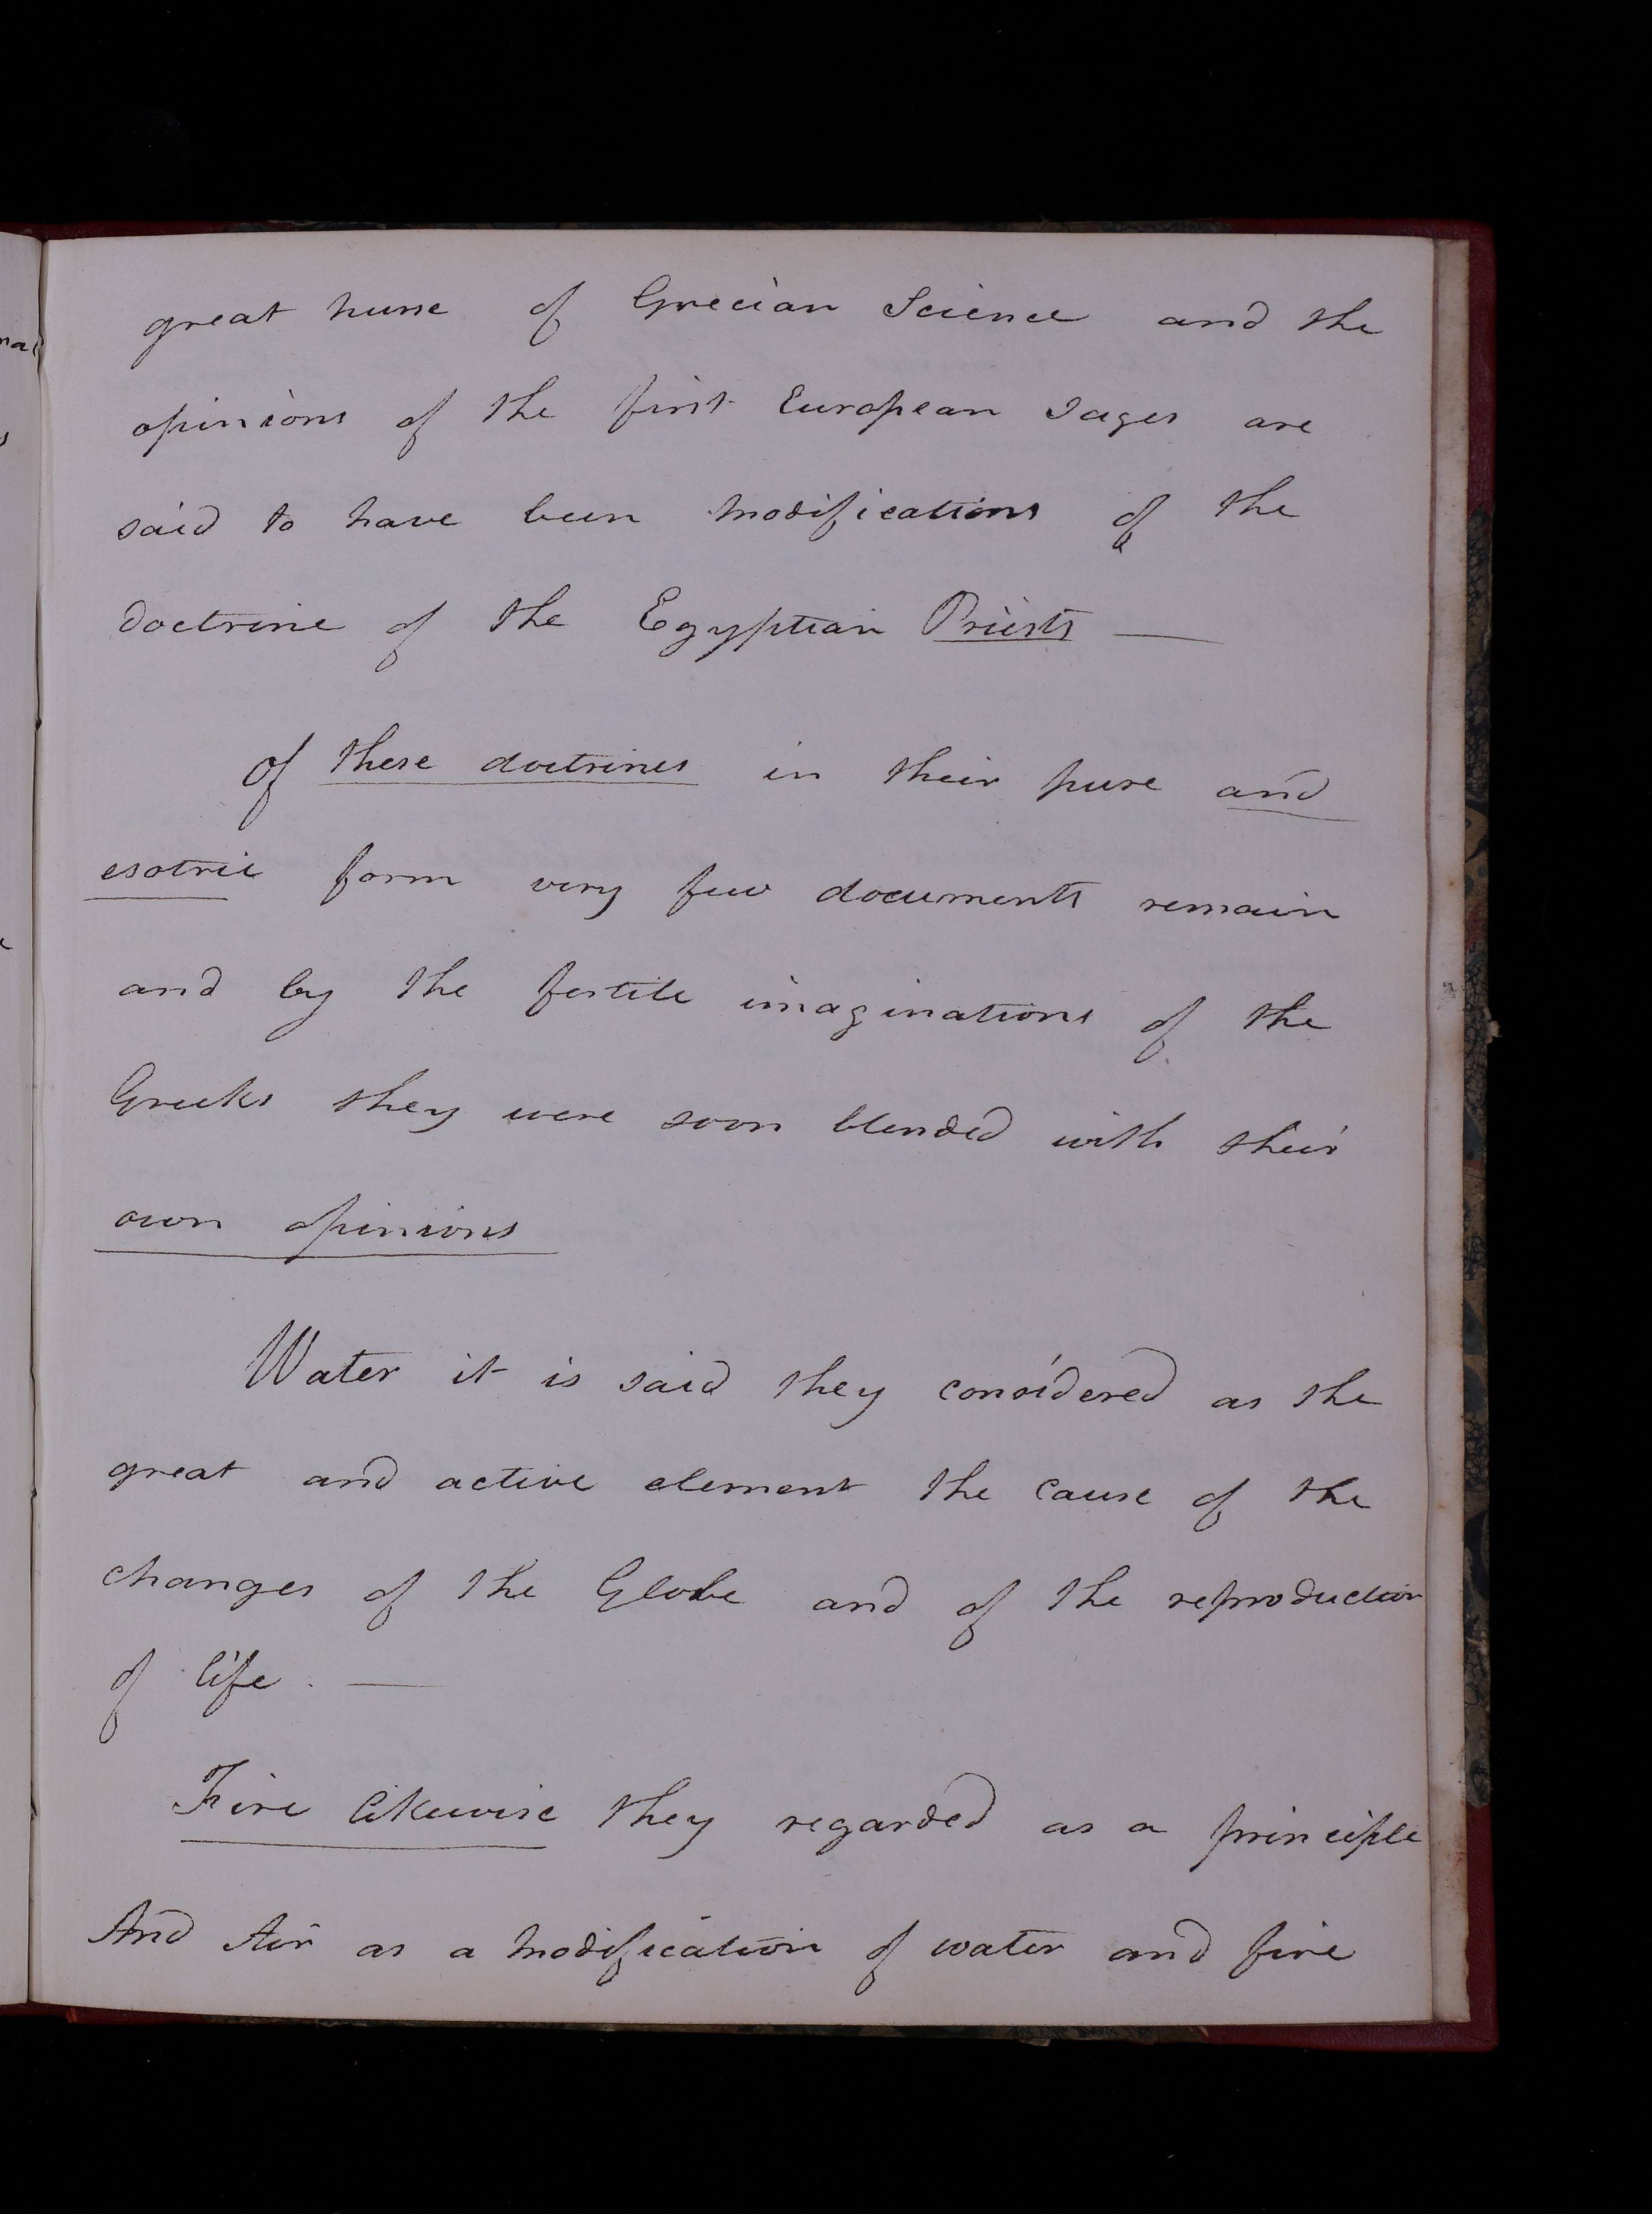 great nurse of Grecian Science and the
opinions of the first European Sages are
said to have been modifications of the
doctrine of the Egyptian Priests —
Of these doctrines in their pure and
esotric form very few documents remain
and by the fertile imaginations of the
Greeks they were soon blended with their
own opinions
Water it is said they considered as the
great and active element the cause of the
changes of the Globe and of the reproduction
of life. —
Fire likewise they regarded as a principle
And Air as a modification of water and fire